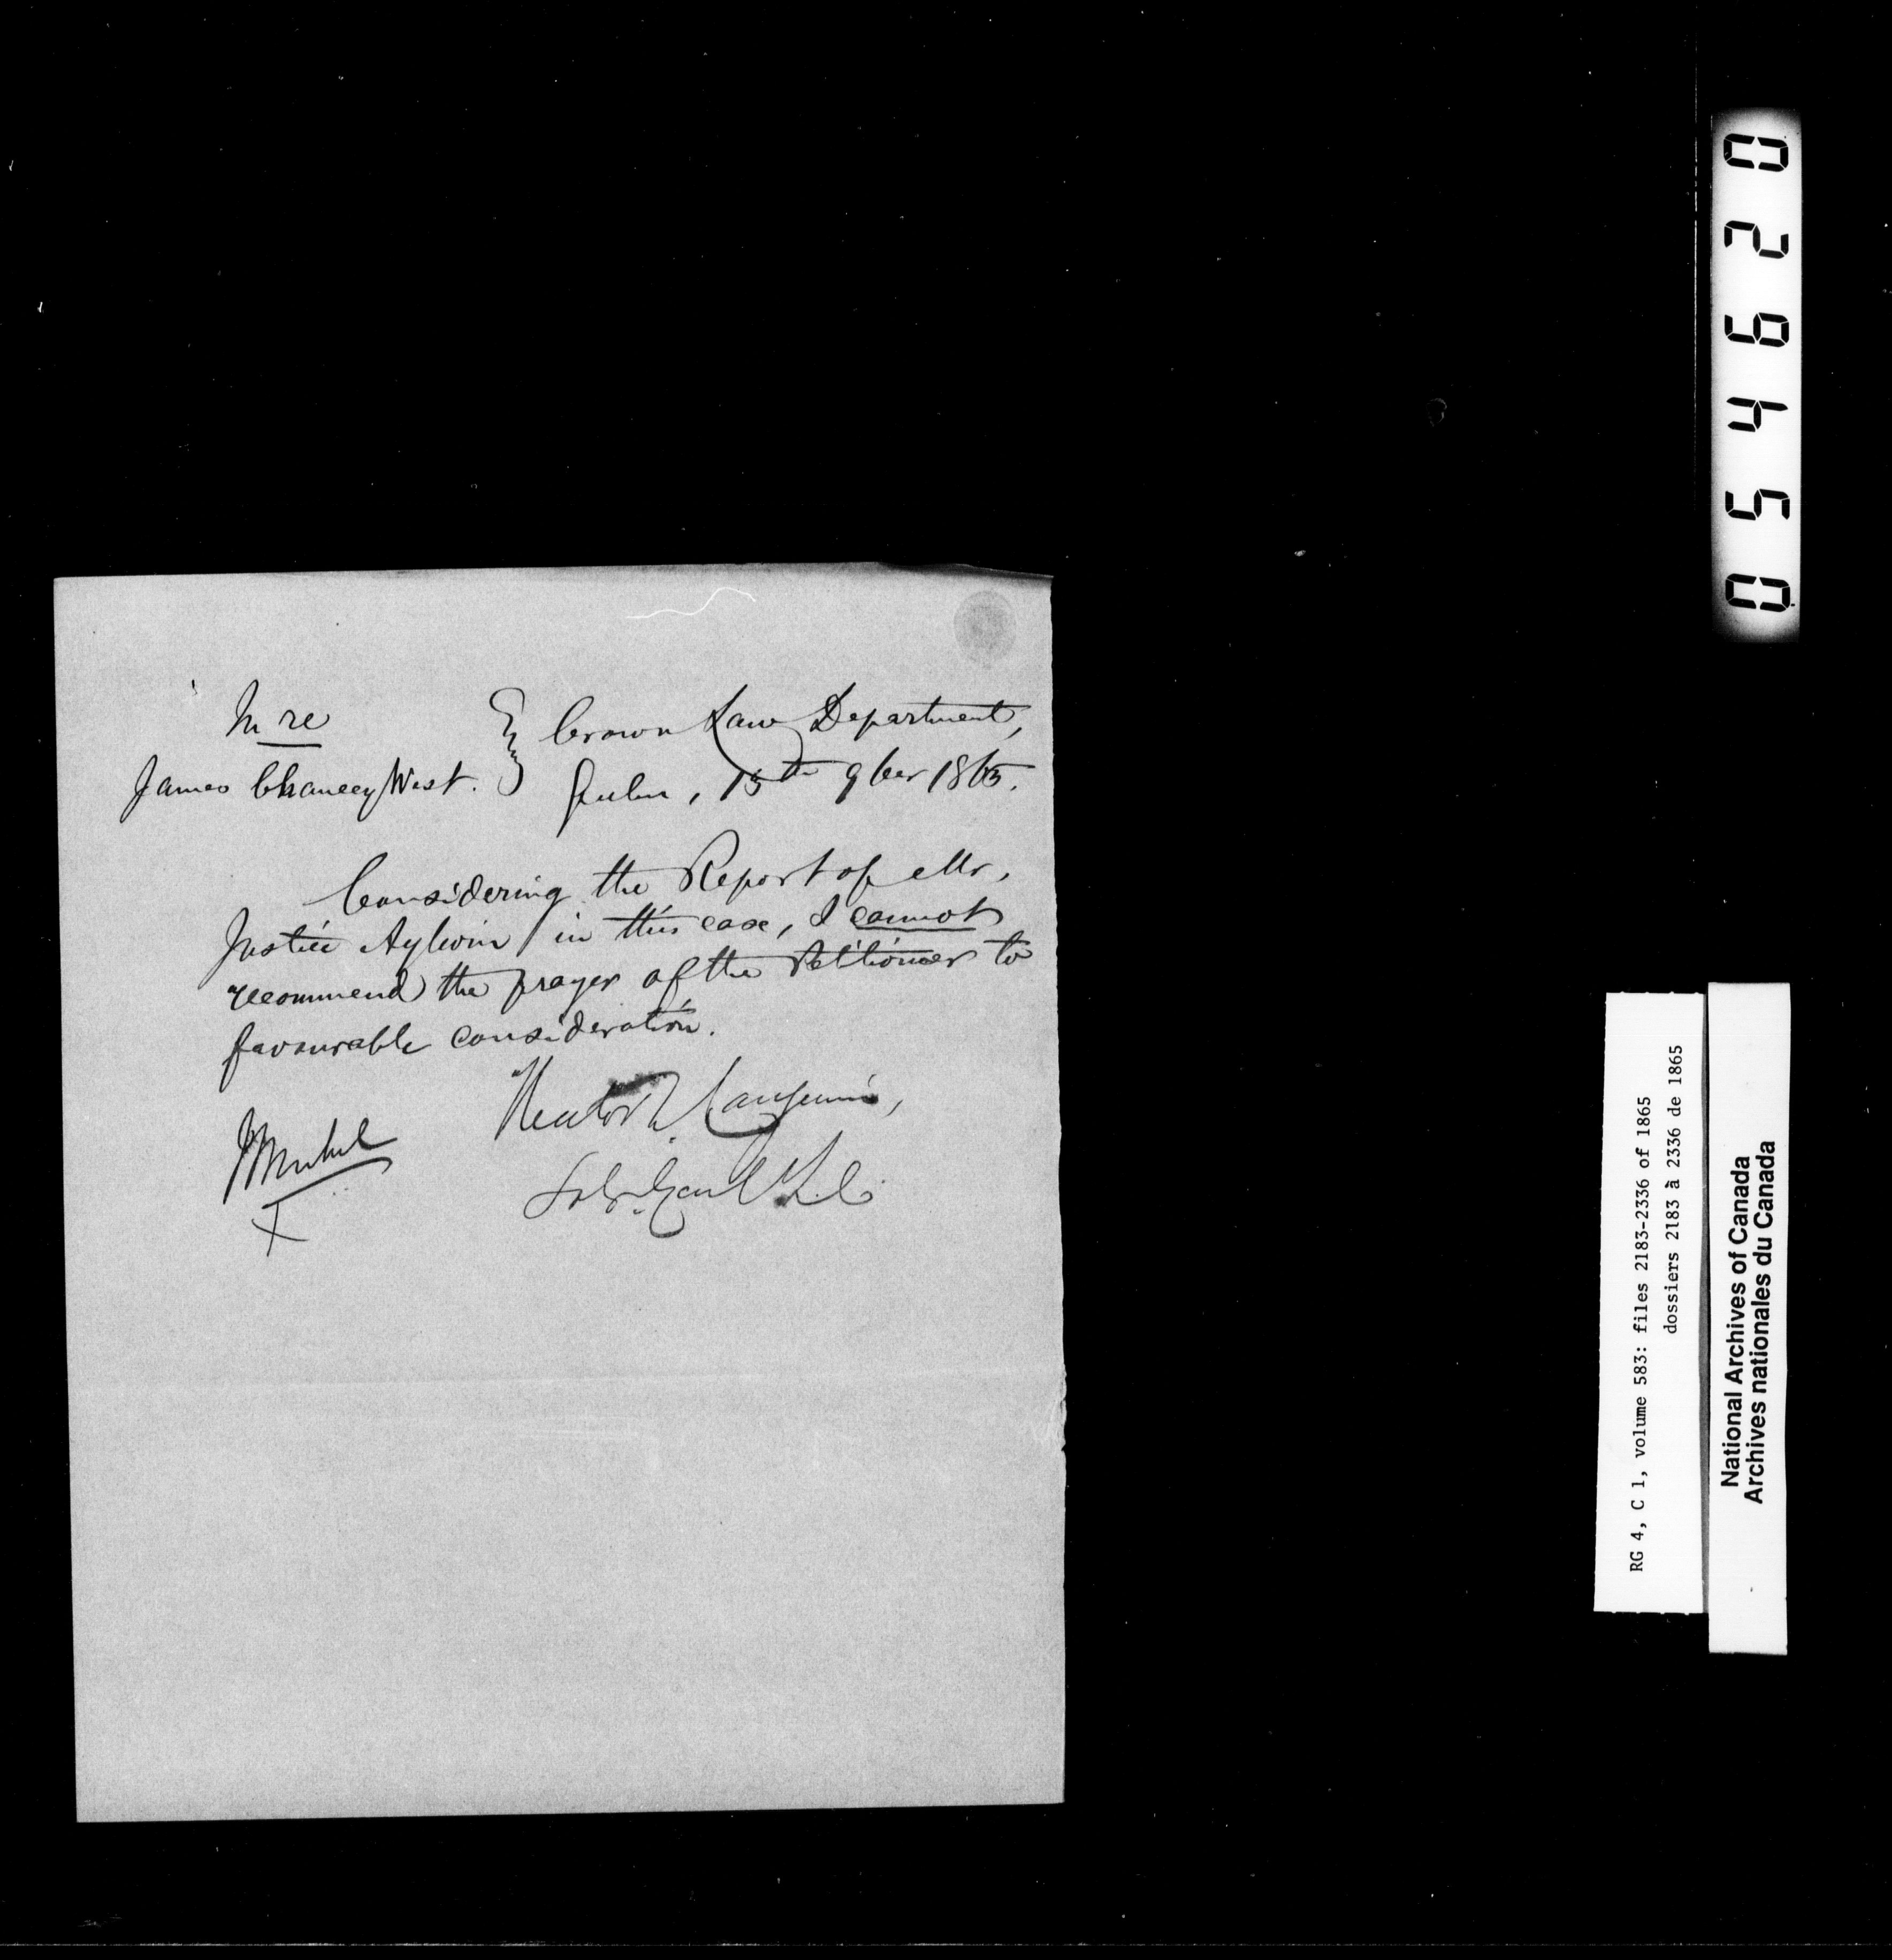 In re
James Chauncey West.
Crown Law Department,
Quebec, 13th 9ber 1865.
Considering the Report of Mr.
Justice Aylwin in this case, I cannot
recommend the prayer of the Petitioner to
favourable consideration.
Hector L. Langevin,
Solr. Genl. L. C.
054620
RG 4, C 1, volume 583: files 2183-2336 of 1865
dossiers 2183 à 2336 de 1865
National Archives of Canada
Archives nationales du Canada